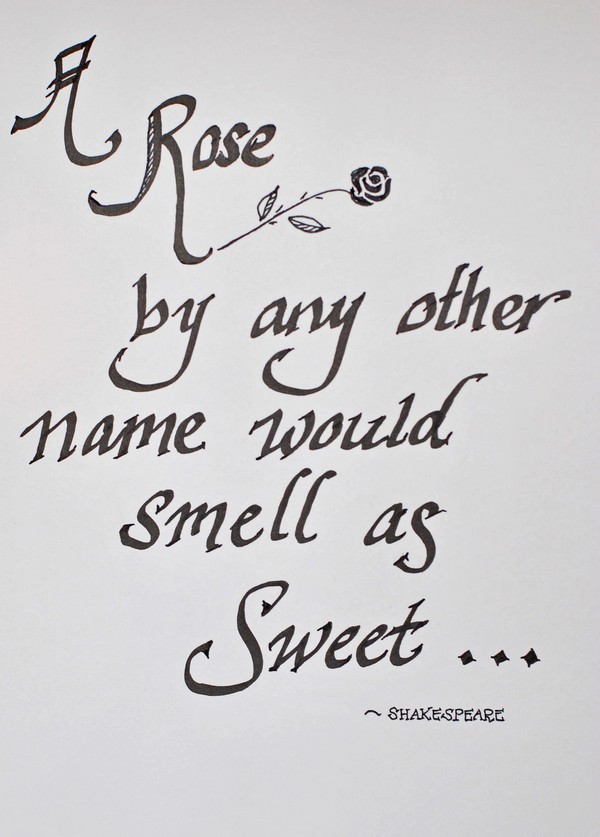 A
Rose
by any other
name would
smell as
Sweet ...
~ SHAKESPEARE